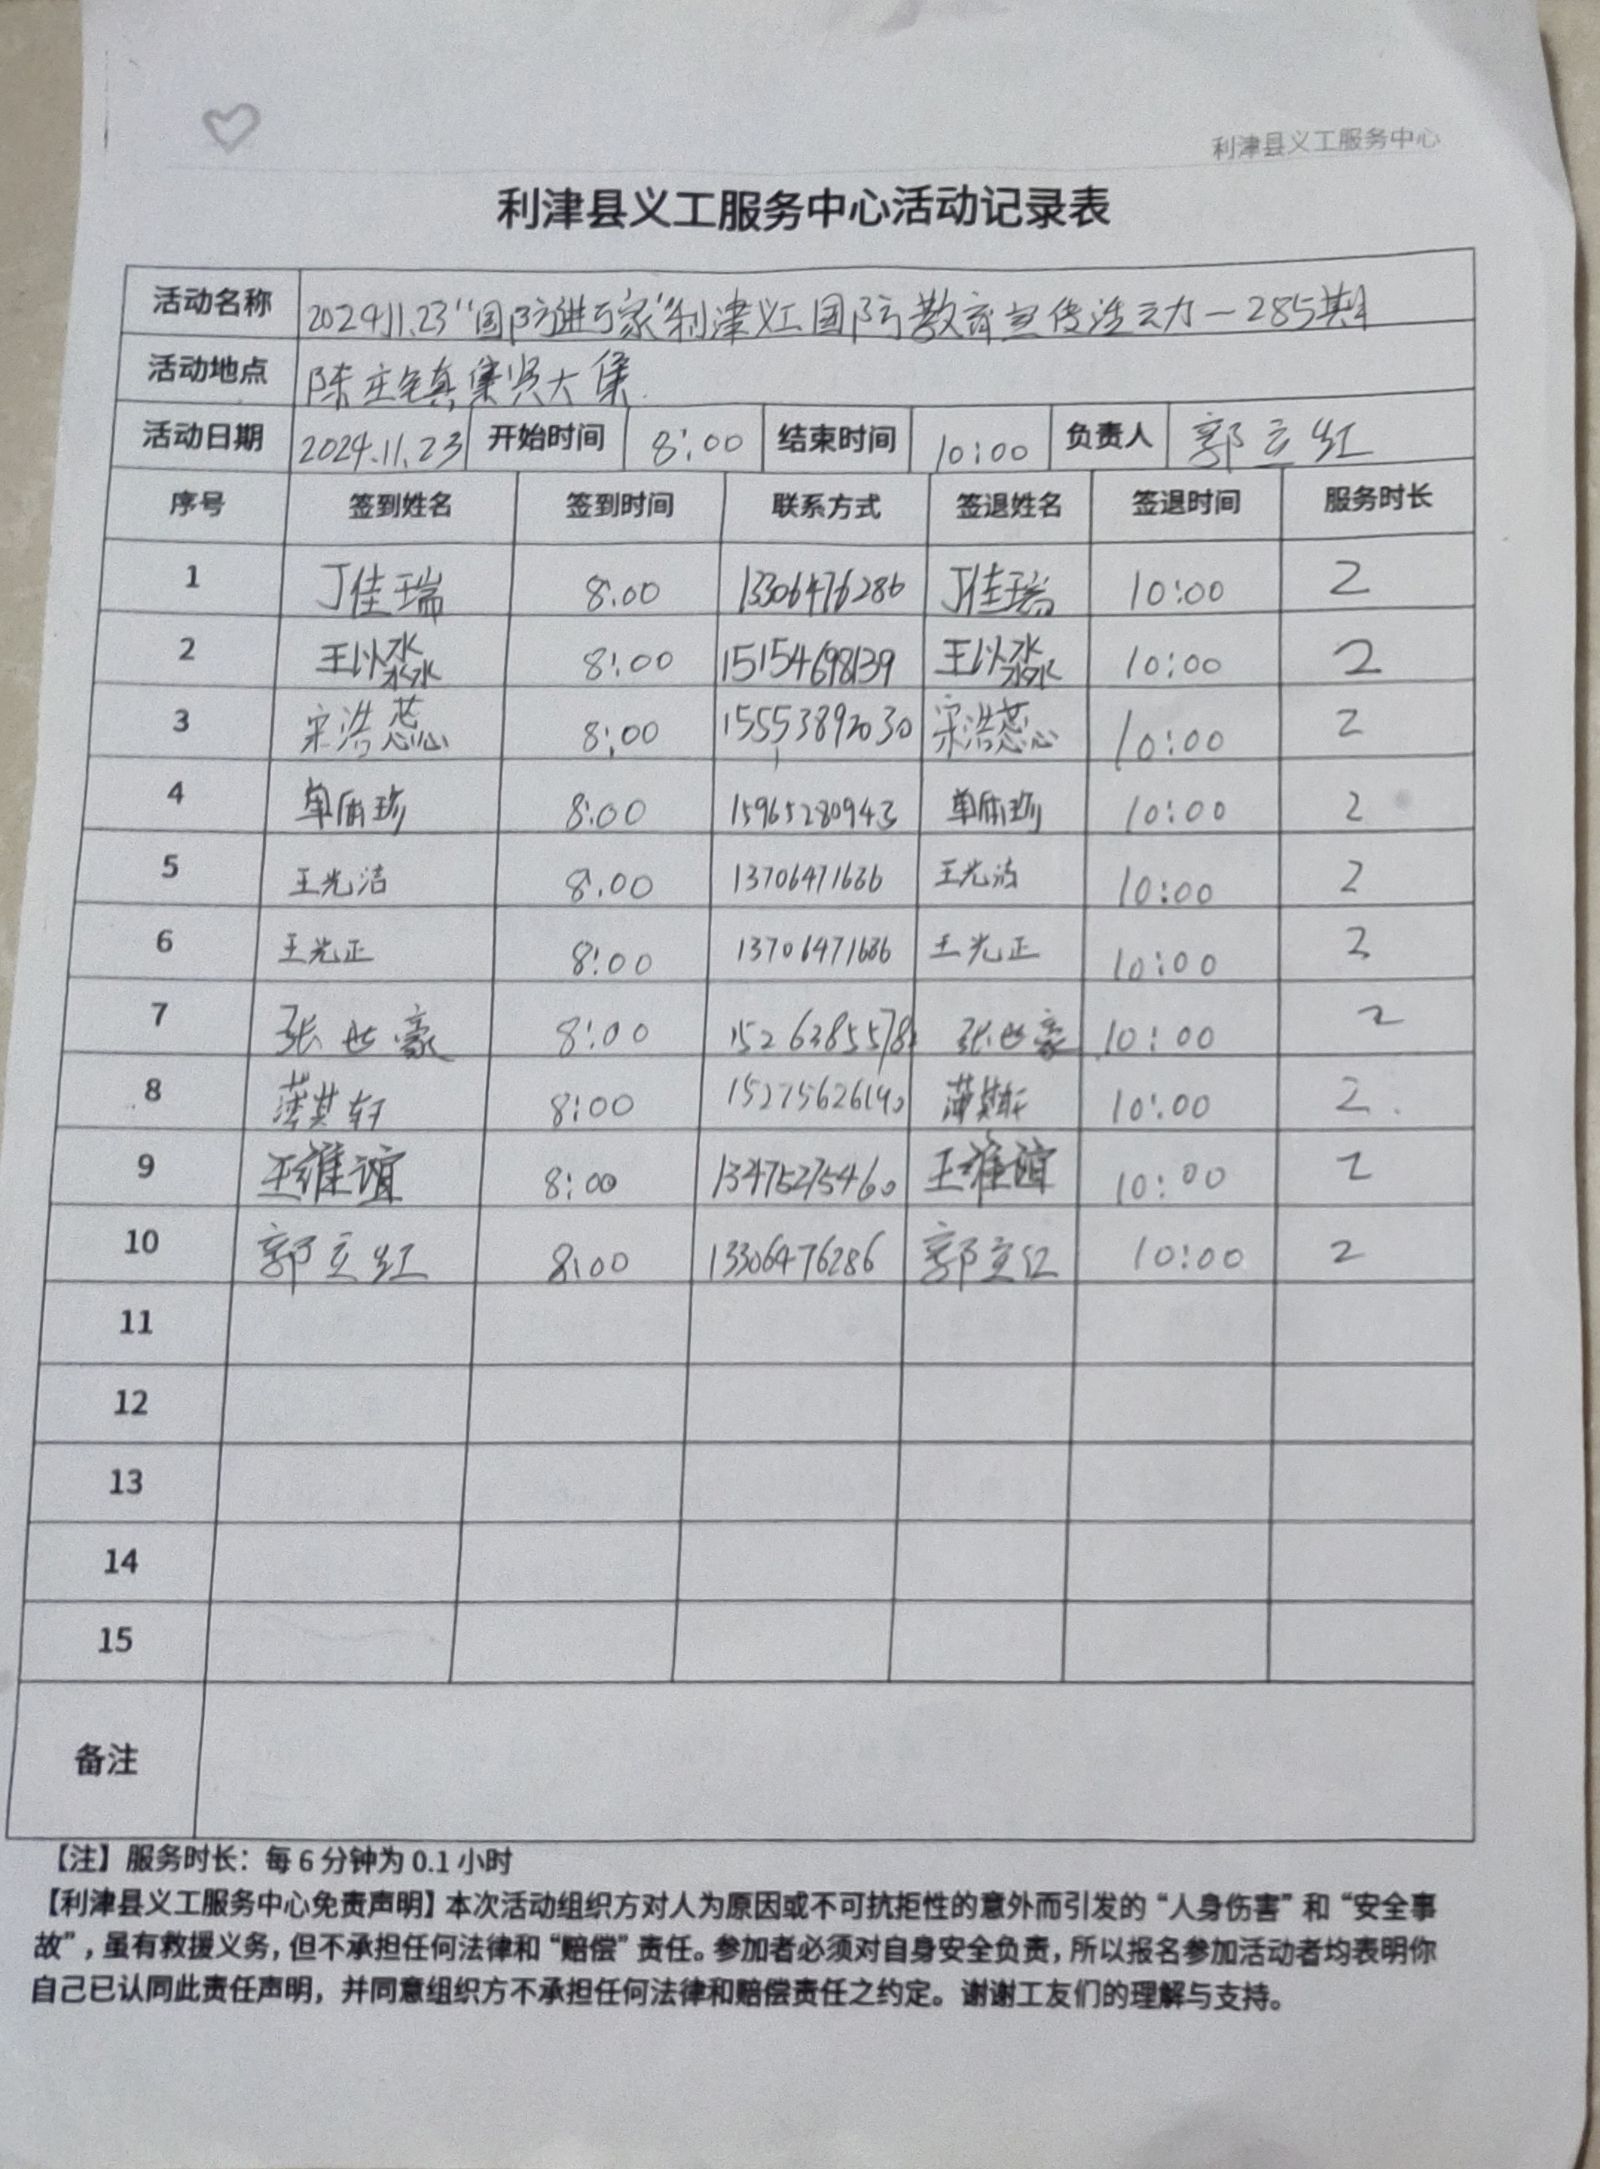 利津县义工服务中心
利津县义工服务中心活动记录表
活动名称 2024.11.23“国防进万家”利津义工国防教育宣传活动—285期
活动地点 陈庄镇集贤大集
活动日期 2024.11.23 开始时间 8:00 结束时间 10:00 负责人 郭立红
序号 签到姓名 签到时间 联系方式 签退姓名 签退时间 服务时长
1 丁佳瑞 8:00 13306476286 丁佳瑞 10:00 2
2 王以淼 8:00 15154698139 王以淼 10:00 2
3 宋浩蕊 8:00 15553892030 宋浩蕊 10:00 2
4 8:00 15965280943 10:00 2
5 王光洁 8:00 13706471686 王光洁 10:00 2
6 王光正 8:00 13706471686 王光正 10:00 2
7 张世豪 8:00 张世豪 10:00 2
8 薄其轩 8:00 15275626190 薄其轩 10:00 2
9 王维谊 8:00 13475275460 王维谊 10:00 2
10 郭立红 8:00 13306476286 郭立红 10:00 2
11
12
13
14
15
备注
【注】服务时长：每 6 分钟为 0.1 小时
【利津县义工服务中心免责声明】本次活动组织方对人为原因或不可抗拒性的意外而引发的“人身伤害”和“安全事
故”，虽有救援义务，但不承担任何法律和“赔偿”责任。参加者必须对自身安全负责，所以报名参加活动者均表明你
自己已认同此责任声明，并同意组织方不承担任何法律和赔偿责任之约定。谢谢工友们的理解与支持。